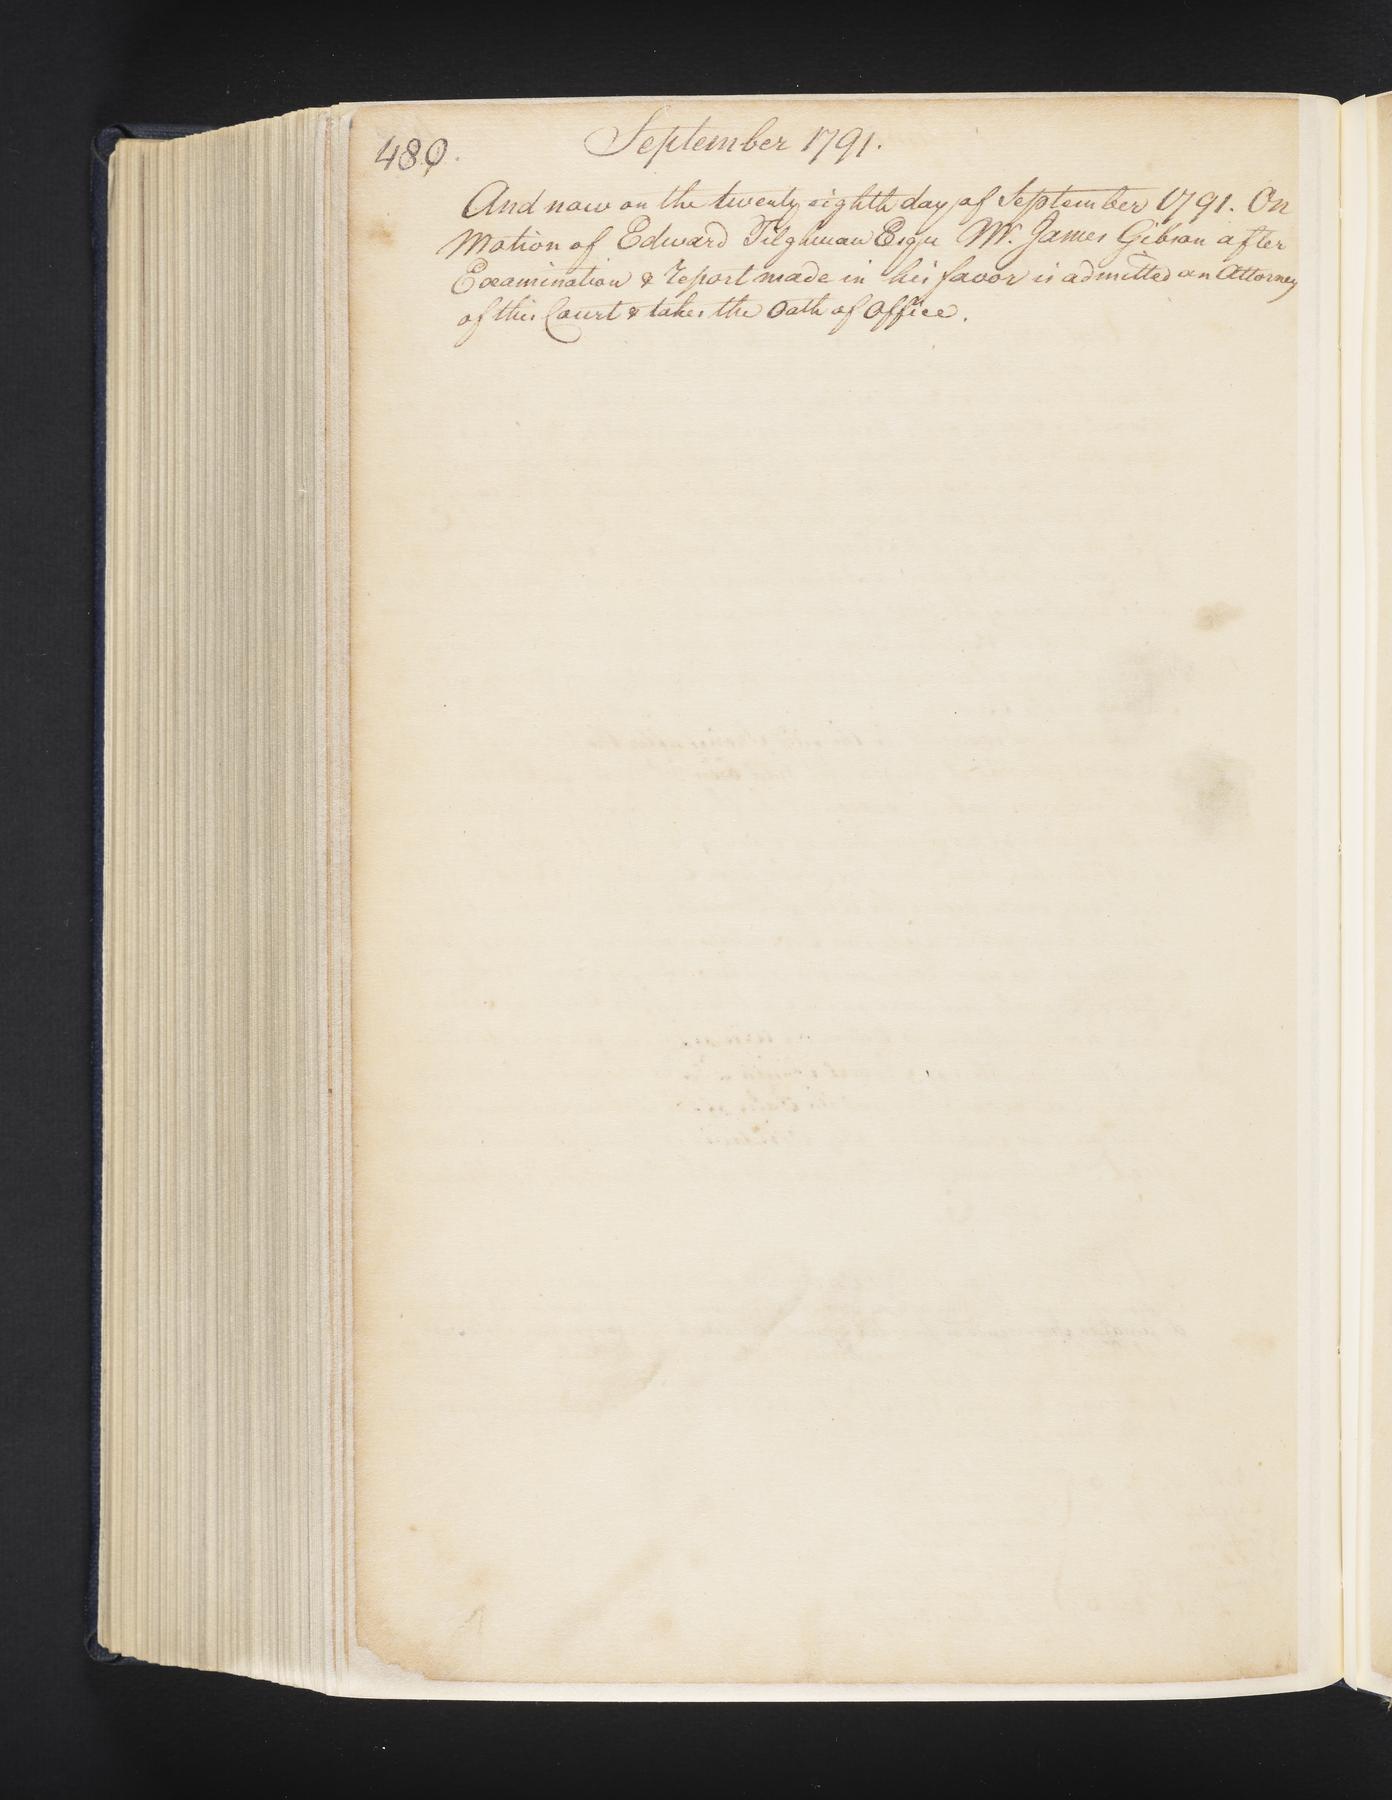 480.
September 1791.
And now on the twenty eighth day of September 1791. On
Motion of Edward Tilghman Esqr Mr. James Gibson after
Examination & report made in his favor is admitted an Attorney
of this Court & takes the Oath of Office.